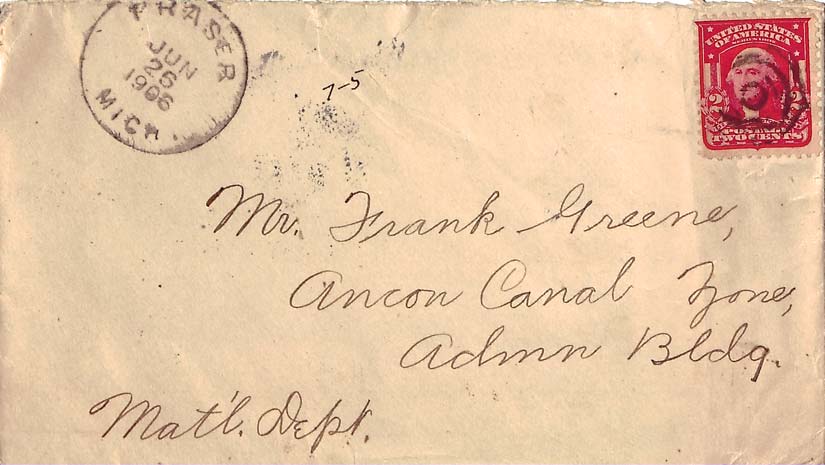 FRASER
JUN
26
1906
MICH.
7-5
UNITED STATES
OF AMERICA
2 2
POSTAGE
TWO CENTS
Mr. Frank Greene,
Ancon Canal Zone,
Admn Bldg.
Mat'l. Dept.